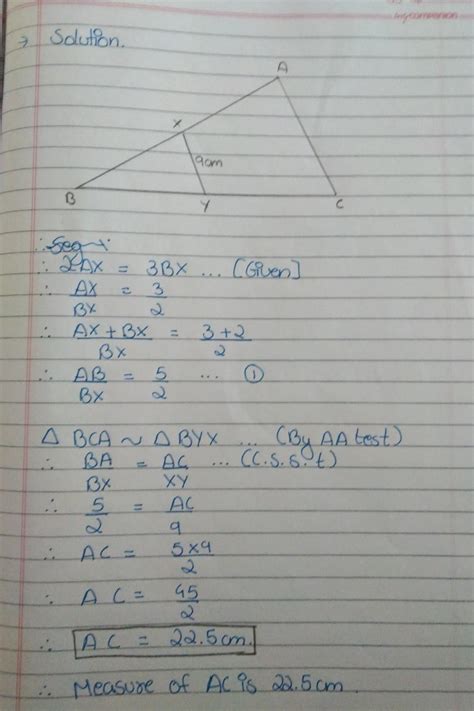 → Solution.
A
X
9cm
B
Y
C
∴ Seg
∴ 2AX = 3BX ... [Given]
∴ AX/BX = 3/2
∴ AX + BX/BX = 3+2/2
∴ AB/BX = 5/2 ... ①
△ BCA ~ △ BYX ... (By AA test)
∴ BA/BX = AC/XY ... (C.S.S.t)
∴ 5/2 = AC/9
∴ AC = 5x9/2
∴ AC = 45/2
∴ AC = 22.5cm.
∴ Measure of AC is 22.5cm.